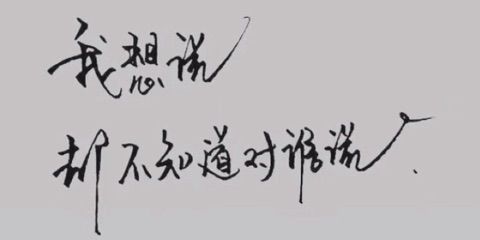 我想说
却不知道对谁说.